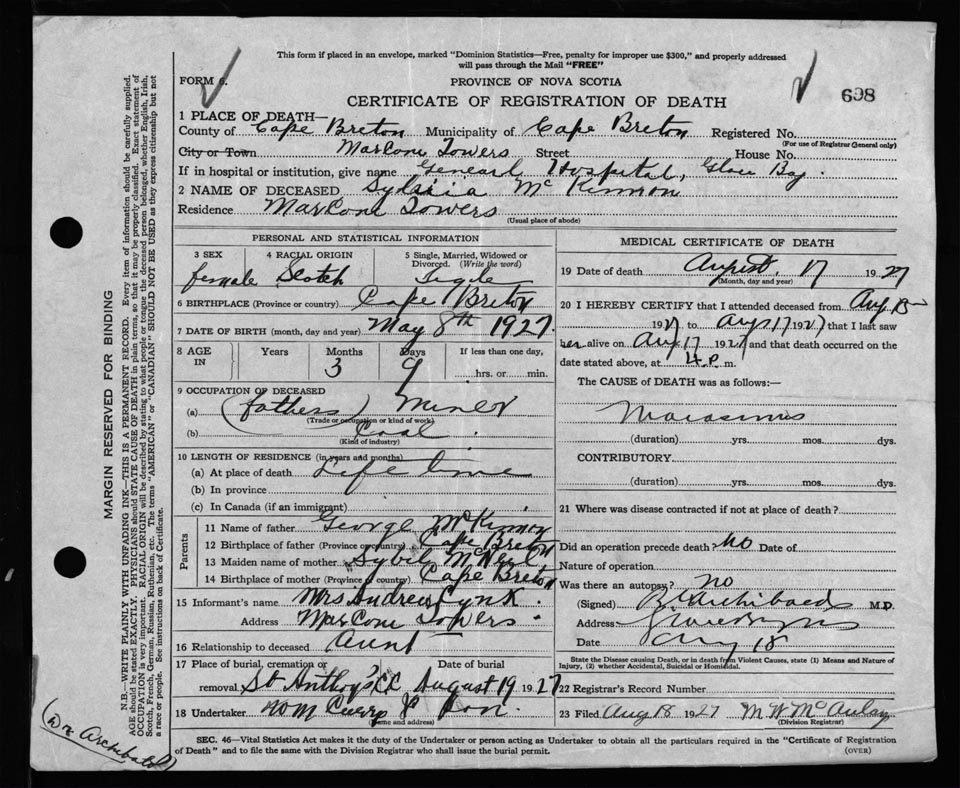 This form if placed in an envelope, marked "Dominion Statistics—Free, penalty for improper use $300," and properly addressed
will pass through the Mail "FREE"
FORM 6. PROVINCE OF NOVA SCOTIA
CERTIFICATE OF REGISTRATION OF DEATH 698
1 PLACE OF DEATH—
County of Cape Breton Municipality of Cape Breton Registered No.
(For use of Registrar General only)
City or Town Marconi Towers Street House No.
If in hospital or institution, give name General Hospital, Glace Bay.
2 NAME OF DECEASED Sylvia McKinnon
Residence Marconi Towers
(Usual place of abode)
PERSONAL AND STATISTICAL INFORMATION
3 SEX 4 RACIAL ORIGIN 5 Single, Married, Widowed or Divorced. (Write the word)
female Scotch Single
6 BIRTHPLACE (Province or country) Cape Breton
7 DATE OF BIRTH (month, day and year) May 8th 1927
8 AGE IN Years Months Days If less than one day,
3 9 hrs. or min.
9 OCCUPATION OF DECEASED
(a) (fathers) Miner
(Trade or occupation or kind of work)
(b) Coal
(Kind of industry)
10 LENGTH OF RESIDENCE (in years and months)
(a) At place of death Life time
(b) In province
(c) In Canada (if an immigrant)
Parents
11 Name of father George McKinnon
12 Birthplace of father (Province or country) Cape Breton
13 Maiden name of mother Sybil
14 Birthplace of mother (Province or country) Cape Breton
15 Informant's name Mrs Andrew Cynk.
Address Marconi Towers.
16 Relationship to deceased Aunt
17 Place of burial, cremation or Date of burial
removal St Anthony's C.C. August 19 1927
18 Undertaker Wm Curry & Son.
(Name and address)
MEDICAL CERTIFICATE OF DEATH
19 Date of death August 17 1927
(Month, day and year)
20 I HEREBY CERTIFY that I attended deceased from Aug
1927 to Aug 17 1927 that I last saw
her alive on Aug 17 1927 and that death occurred on the
date stated above, at 4 P. m.
The CAUSE of DEATH was as follows:—
Marasmus
(duration) yrs. mos. dys.
CONTRIBUTORY
(duration) yrs. mos. dys.
21 Where was disease contracted if not at place of death?
Did an operation precede death? No Date of
Nature of operation
Was there an autopsy? no
(Signed) Archibald M.D.
Address
Date Aug 18
State the Disease causing Death, or in death from Violent Causes, state (1) Means and Nature of
Injury, (2) whether Accidental, Suicidal or Homicidal.
22 Registrar's Record Number
23 Filed Aug 18 1927 M W McAulay
(Division Registrar)
SEC. 46—Vital Statistics Act makes it the duty of the Undertaker or person acting as Undertaker to obtain all the particulars required in the "Certificate of Registration
of Death" and to file the same with the Division Registrar who shall issue the burial permit. (OVER)
MARGIN RESERVED FOR BINDING
N.B.—WRITE PLAINLY WITH UNFADING INK—THIS IS A PERMANENT RECORD. Every item of information should be carefully supplied.
AGE should be stated EXACTLY. PHYSICIANS should STATE CAUSE OF DEATH in plain terms, so that it may be properly classified. Exact statement of
OCCUPATION is very important. RACIAL ORIGIN will be described by stating to what people or tongue the deceased person belonged, whether English, Irish,
Scotch, French, German, Russian, Ruthenian, etc. The terms "AMERICAN" or "CANADIAN" SHOULD NOT BE USED as they express citizenship but not
a race or people. See instructions on back of Certificate.
(Dr Archibald)